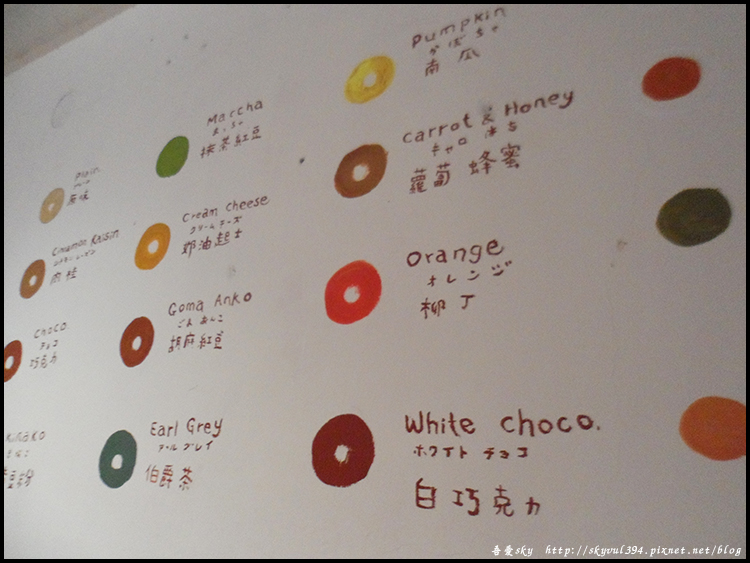 Plain
原味
Cinnamon Raisin
シナモンレーズン
肉桂
Choco
チョコ
巧克力
Kinako
きなこ
豆粉
Marcha
抹茶紅豆
Cream Cheese
クリームチーズ
奶油起士
Goma Anko
ごまあんこ
胡麻紅豆
Earl Grey
アールグレイ
伯爵茶
Pumpkin
かぼちゃ
南瓜
Carrot & Honey
キャロはち
蘿蔔 蜂蜜
Orange
オレンジ
柳丁
White choco.
ホワイト チョコ
白巧克力
吾愛sky http://skyvul394.pixnet.net/blog